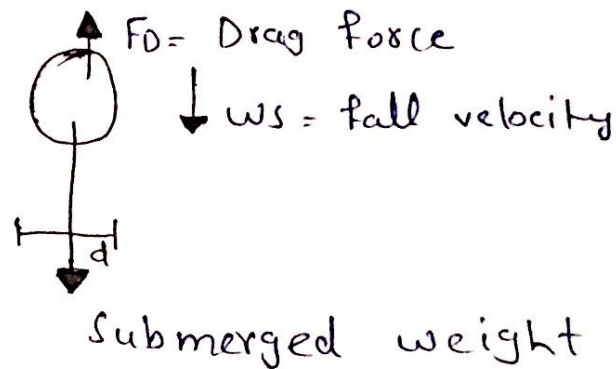 FD = Drag force
ws = fall velocity
d
Submerged weight